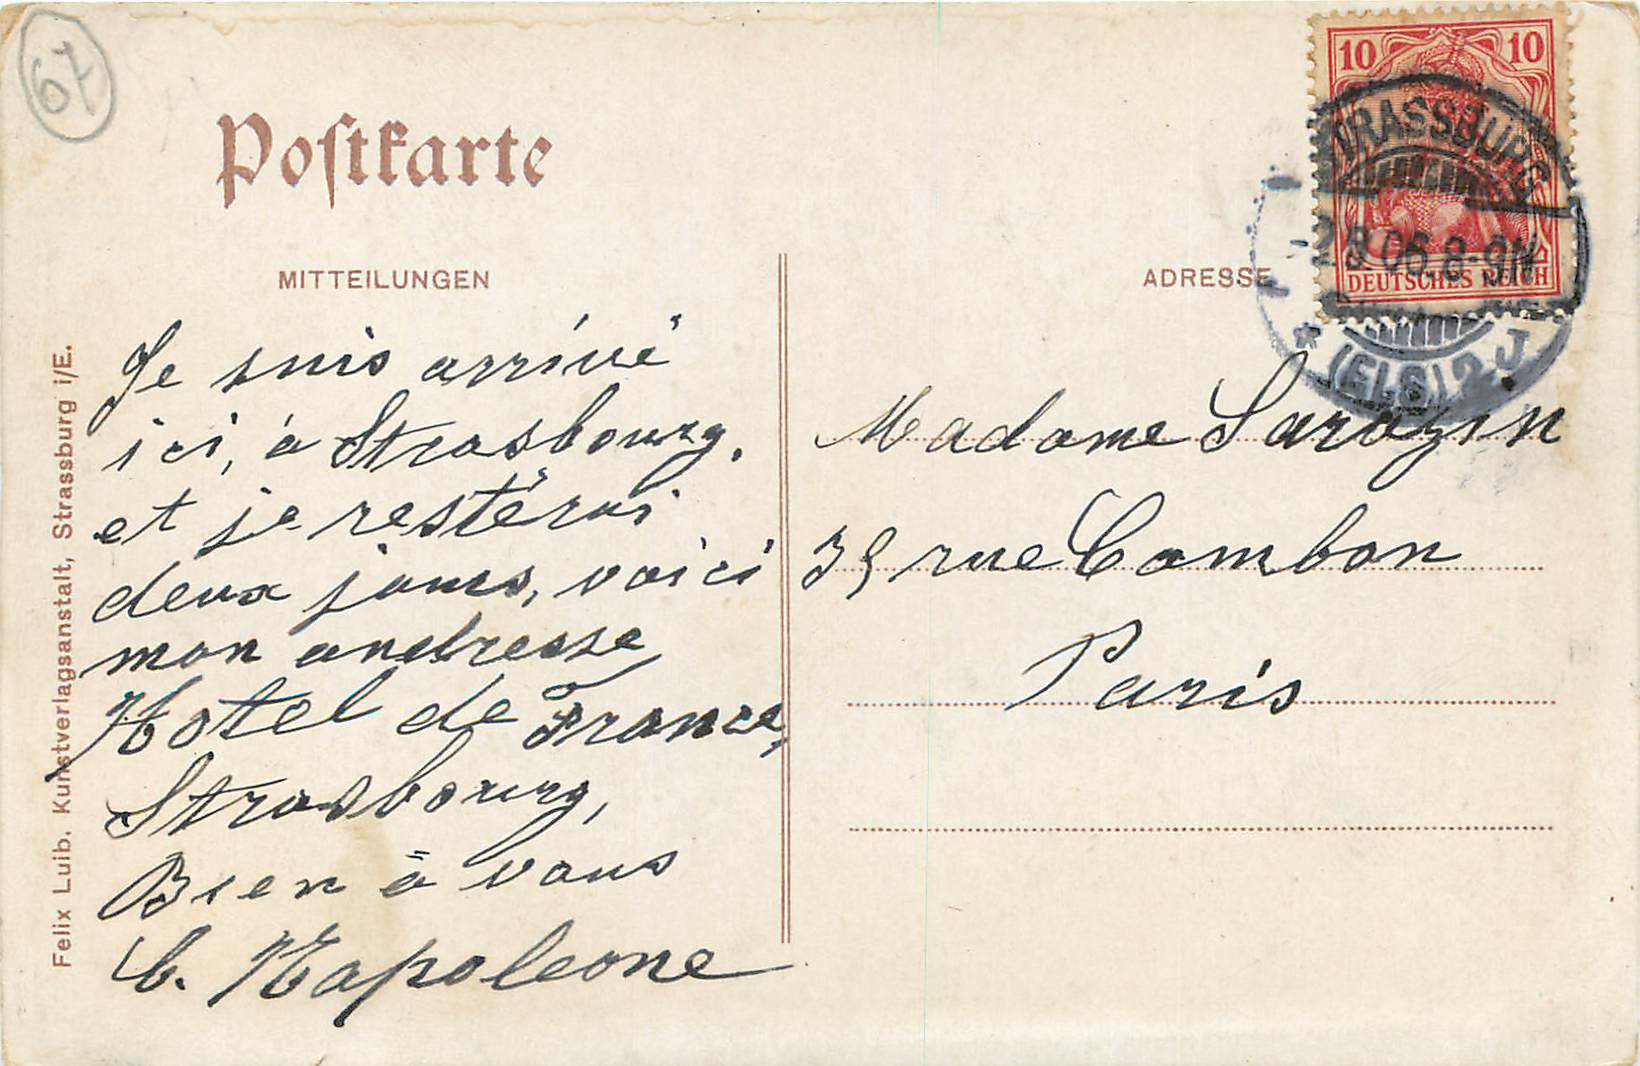 67
Postkarte
MITTEILUNGEN
ADRESSE
10 10
DEUTSCHES REICH
STRASSBURG
8-9N
* (ELS.) 2 J
Je suis arrivé
ici, à Strasbourg.
et je resterai
deux jours, voici
mon andresse
Hotel de France,
Strasbourg,
Bien à vous
C. Napoleone
Madame Sarazin
39 rue Cambon
Paris
Felix Luib. Kunstverlagsanstalt, Strassburg i/E.